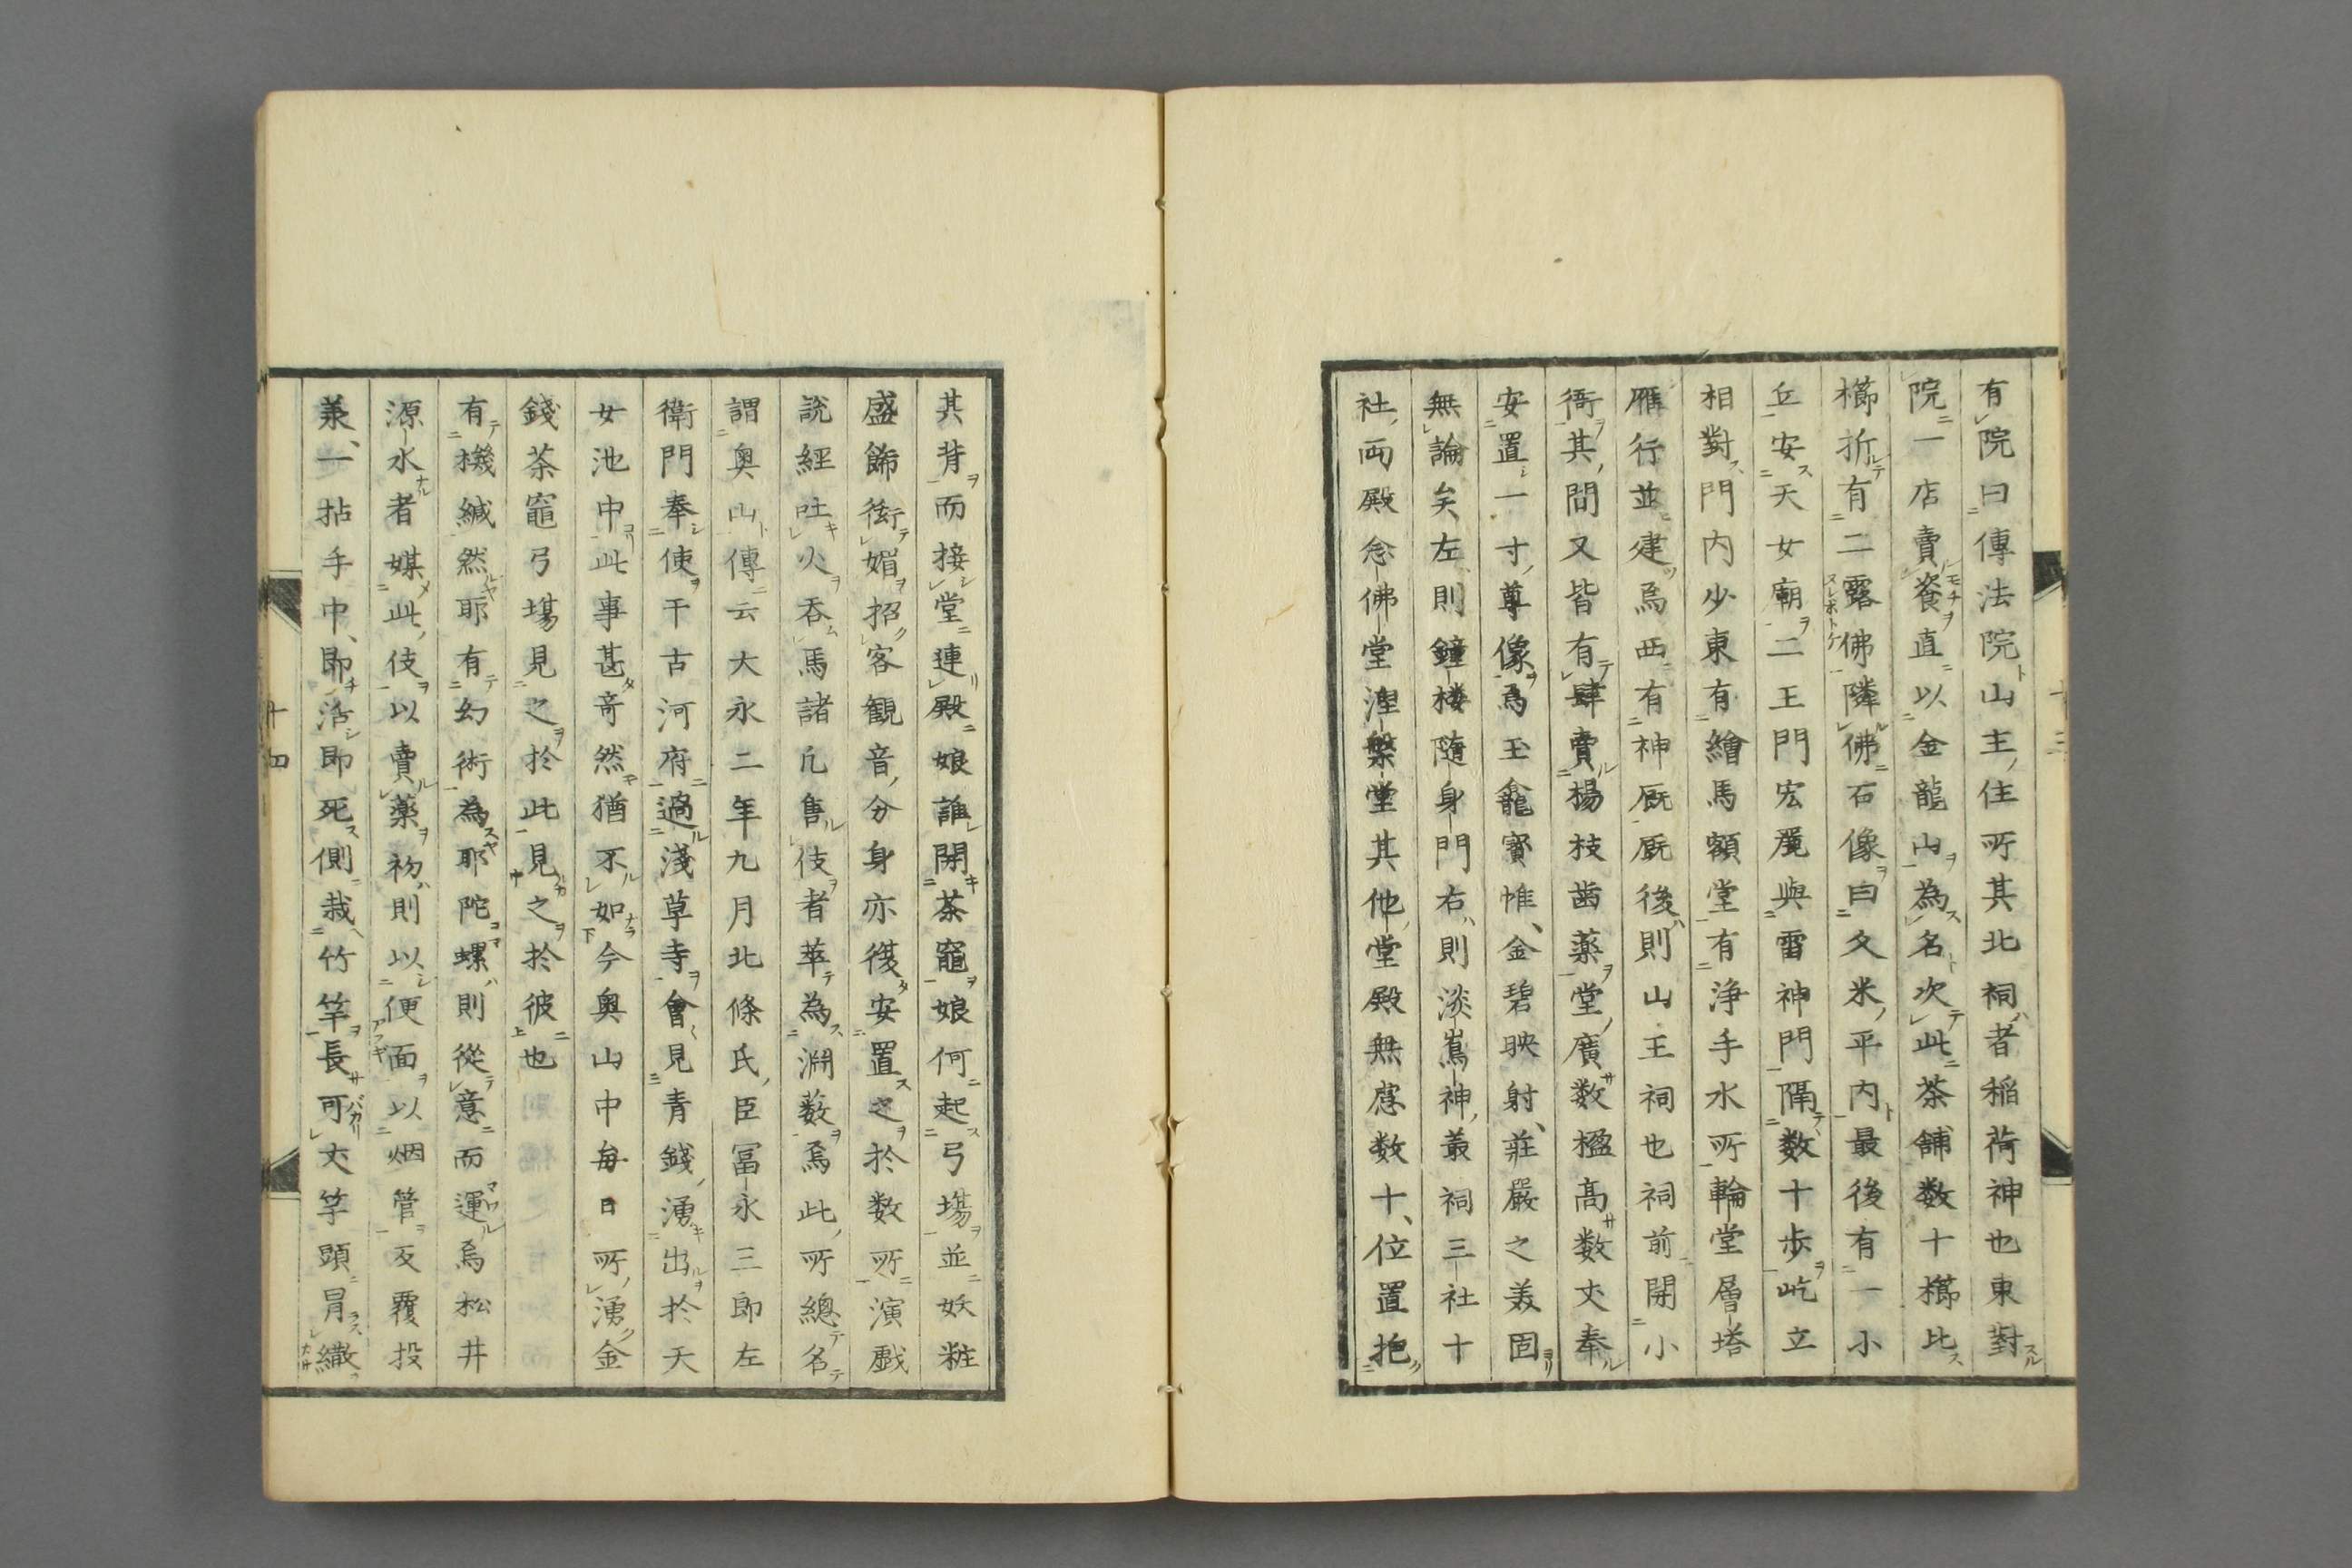 有院曰傳法院山主住所其北祠者稲荷神也東對
院一店賣餈直以金龍山為名次此茶舗数十櫛比
櫛折有二露佛隣佛石像曰久米平内最後有一小
丘安天女廟二王門宏麗與雷神門隔数十歩屹立
相對門内少東有繪馬額堂有浄手水所輪堂層塔
雁行並建焉西有神厩厩後則山王祠也祠前開小
衙其間又皆有肆賣楊枝歯薬堂廣数楹髙数丈奉
安置一寸尊像焉玉龕寳帷金碧映射荘嚴之美固
無論矣左則鐘楼随身門右則淡嶌神叢祠三社十
社両殿念佛堂涅槃堂其他堂殿無慮数十位置抱
其背而接堂連殿娘誰開茶竈娘何起弓塲並妖粧
盛飾衒媚招客観音分身亦復安置之於数所演戯
說經吐火呑馬諸凢售伎者萃為渊薮焉此所總名
謂奥山傳云大永二年九月北條氏臣冨永三郎左
衛門奉使干古河府過淺草寺會見青錢湧出於天
女池中此事甚竒然猶不如今奥山中毎日所湧金
錢茶竈弓塲見之於此見之於彼也
有機緘然耶有幻術為耶陀螺則從意而運焉松井
源水者媒此伎以賣薬初則以便面以烟管反覆投
兼一拈手中即活即死側栽竹竿長可丈竿頭冐繖
十四